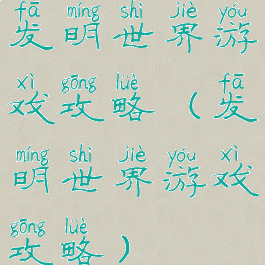 fā míng shì jiè yóu
发明世界游
xì gōng lüè fā
戏攻略（发
míng shì jiè yóu xì
明世界游戏
gōng lüè
攻略）